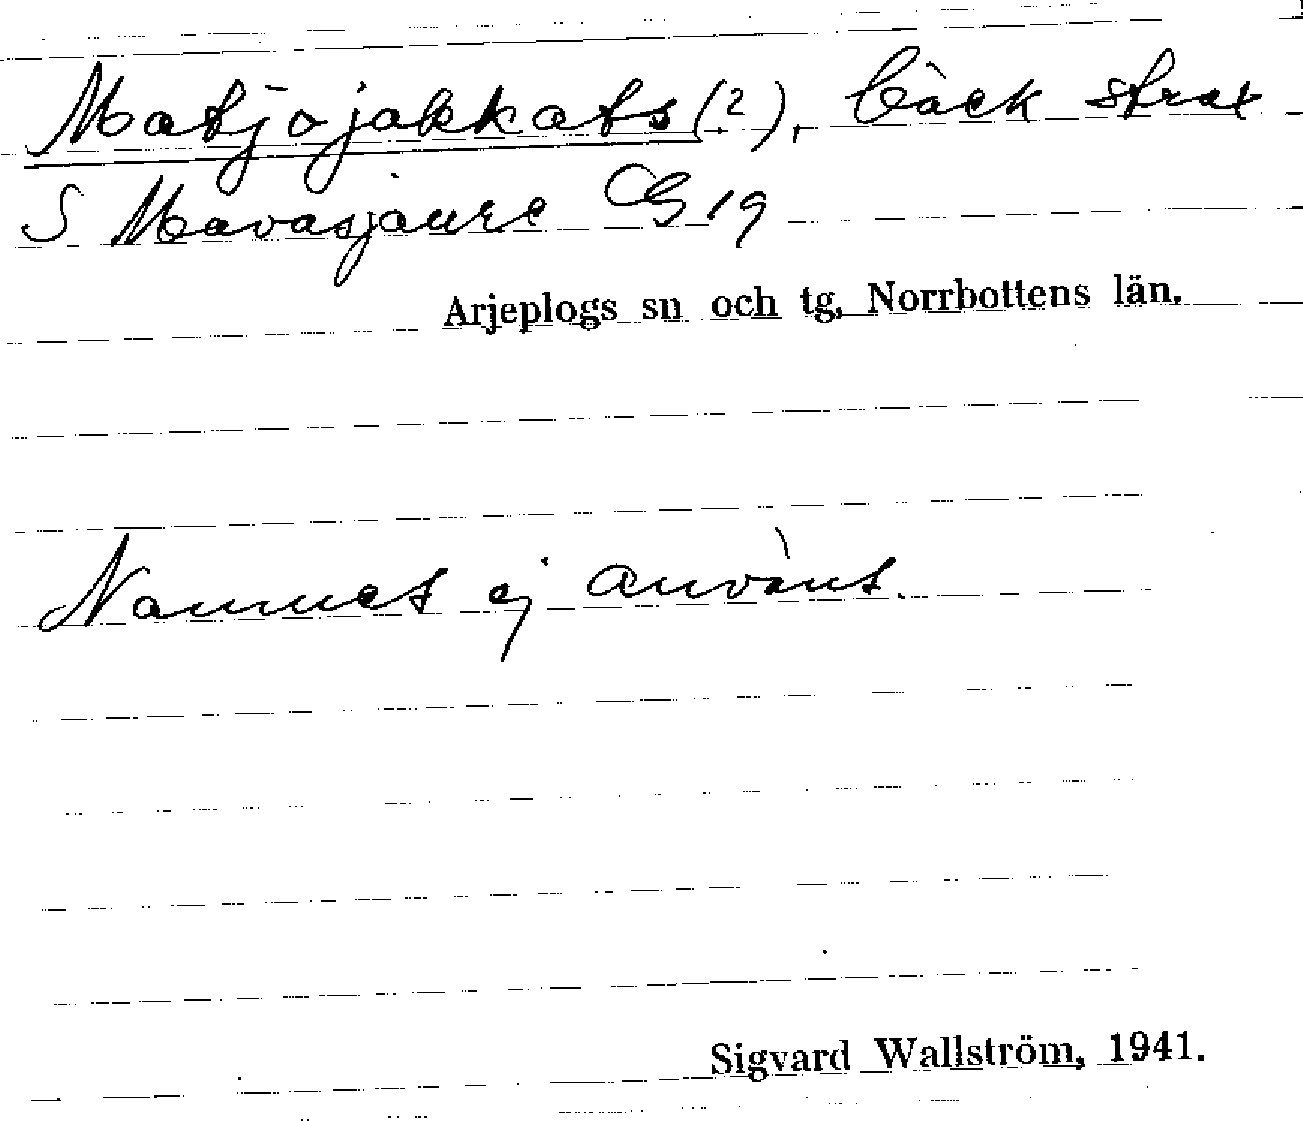 Matjojakkats (2), bäck strax
S Mavasjaure G 19
Arjeplogs sn och tg, Norrbottens län.
Namnet ej använt.
Sigvard Wallström, 1941.